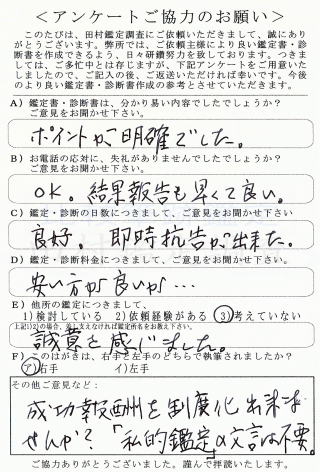 ＜アンケートご協力のお願い＞
このたびは、田村鑑定調査にご依頼いただきまして、誠にあり
がとうございます。弊所では、ご依頼主様により良い鑑定書・診
断書を作成できるよう、日々研鑽努力を致しております。つきま
しては、ご多忙中とは存じますが、下記アンケートをご用意いた
しましたので、ご記入の後、ご返送いただければ幸いです。今後
のより良い鑑定書・診断書作成の参考とさせていただきます。
A）鑑定書・診断書は、分かり易い内容でしたでしょうか？
ご意見をお聞かせ下さい
ポイントが明確でした。
B）お電話の応対に、失礼がありませんでしたでしょうか？
ご意見をお聞かせ下さい
OK。結果報告も早くて良い。
C）鑑定・診断の日数につきまして、ご意見をお聞かせ下さい
良好。即時抗告が出来た。
D）鑑定・診断料金につきまして、ご意見をお聞かせ下さい
安い方が良いが…
E）他所の鑑定につきまして、
1)検討している 2)依頼経験がある 3)考えていない
上記1)2)の場合、差し支えなければ鑑定所名をお教え下さい。
誠意を感じました。
F）このはがきは、右手と左手のどちらで執筆されましたか？
ア)右手 イ)左手
その他ご意見など：
成功報酬を制度化出来ま
せんか？「私的鑑定」の文言は不要。
ご協力ありがとうございました。謹んで拝読いたします。